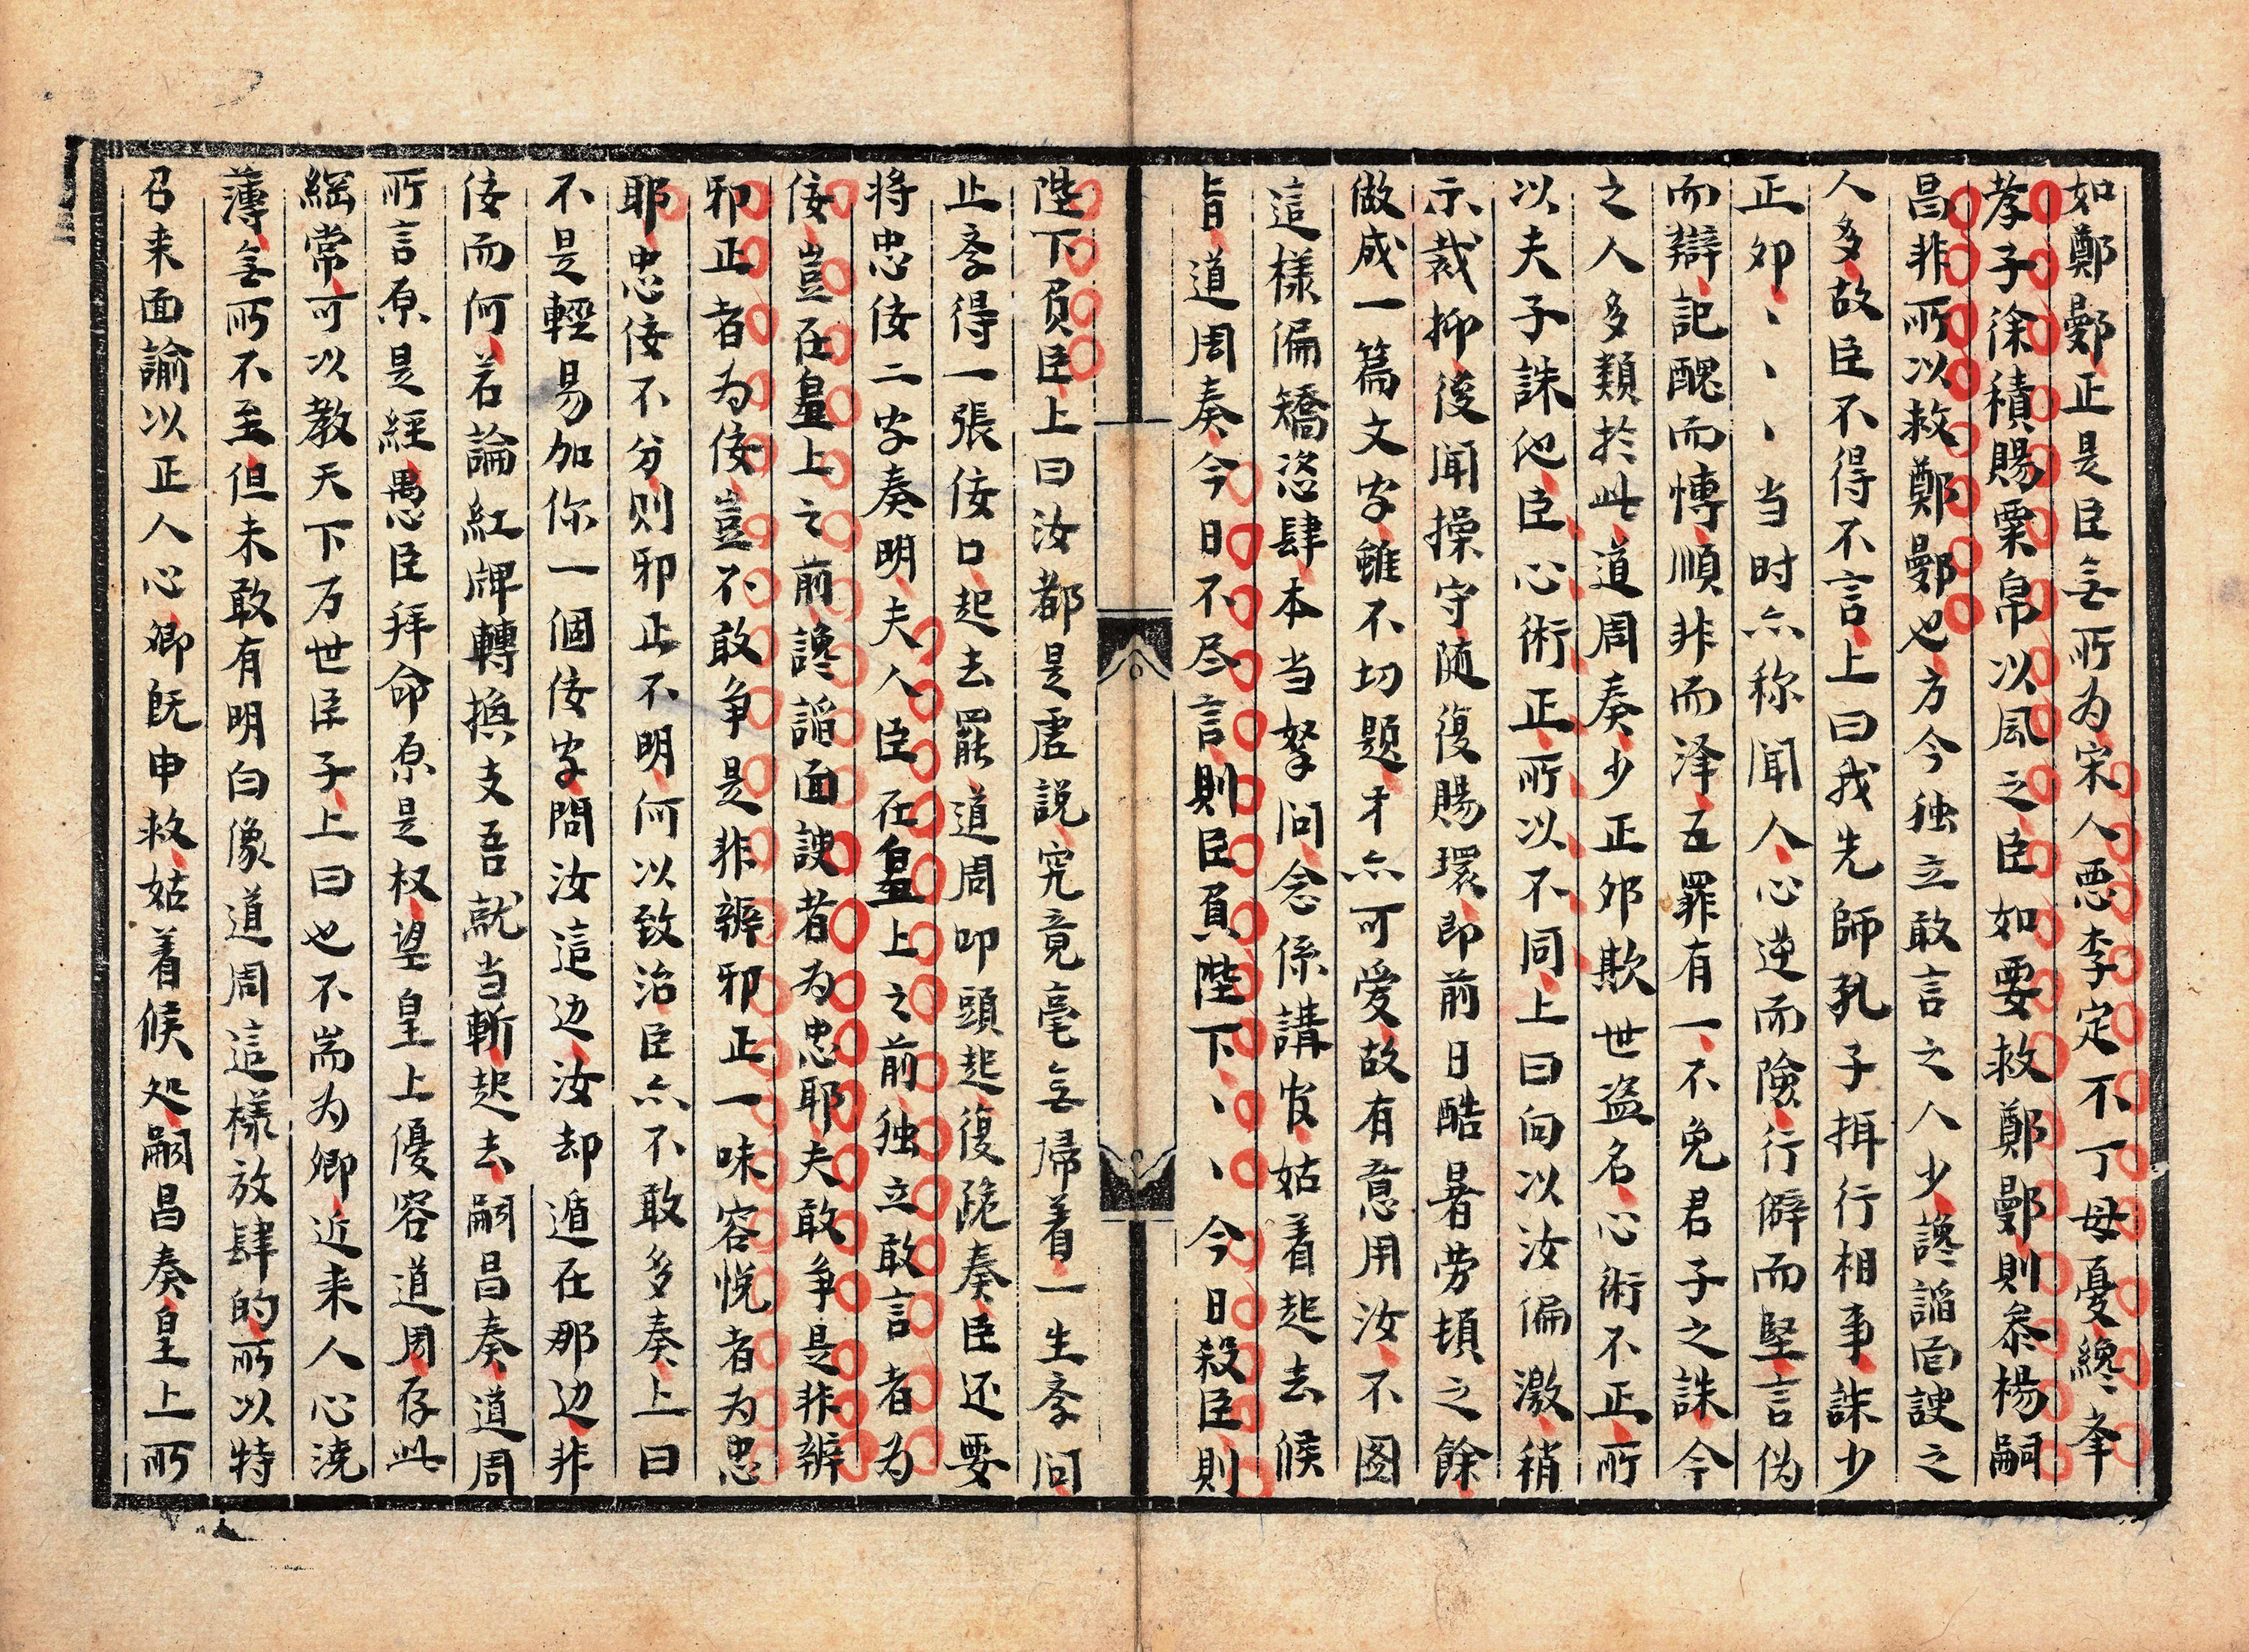 如鄭鄤正是臣無所为宋人悪李定不丁母憂纔孝
孝子徐積賜粟帛以風之臣如要救鄭鄤則叅楊嗣
昌非所以救鄭鄤也方今独立敢言之人少讒謟面諛之
人多故臣不得不言上曰我先師孔子揖行相事誅少
正夘、、、当时亦称闻人心逆而險行僻而堅言伪
而辯記醜而慱順非而泽五罪有一不免君子之誅今
之人多類扵此道周奏少正夘欺世盗名心術不正所
以夫子誅他臣心術正所以不同上曰向以汝偏激稍
示裁抑後闻操守随復賜環即前日酷暑劳頓之餘
做成一篇文字雖不切题才亦可愛故有意用汝不图
這樣偏矯恣肆本当拏问念係講官姑着起去候
旨道周奏今日不尽言則臣負陛下、、今日殺臣則
陛下負臣上曰汝都是虚説究竟毫無帰着一生孝问
止孝得一張佞口起去罷道周叩頭起復跪奏臣还要
将忠佞二字奏明夫人臣在皇上之前独立敢言者为
佞豈在皇上之前讒謟面諛者为忠耶夫敢争是非辨
邪正者为佞豈不敢争是非辨邪正一味容悦者为忠
耶忠佞不分则邪正不明何以致治臣亦不敢多奏上曰
不是輕易加你一個佞字問汝這边汝却遁在那边非
佞而何若論紅牌轉換支吾就当斬起去嗣昌奏道周
所言原是經愚臣拜命原是权望皇上優容道周存此
綱常可以教天下万世臣子上曰也不耑为卿近来人心澆
薄無所不至但未敢有明白像道周這樣放肆的所以特
召来面諭以正人心卿既申救姑着候处嗣昌奏皇上所